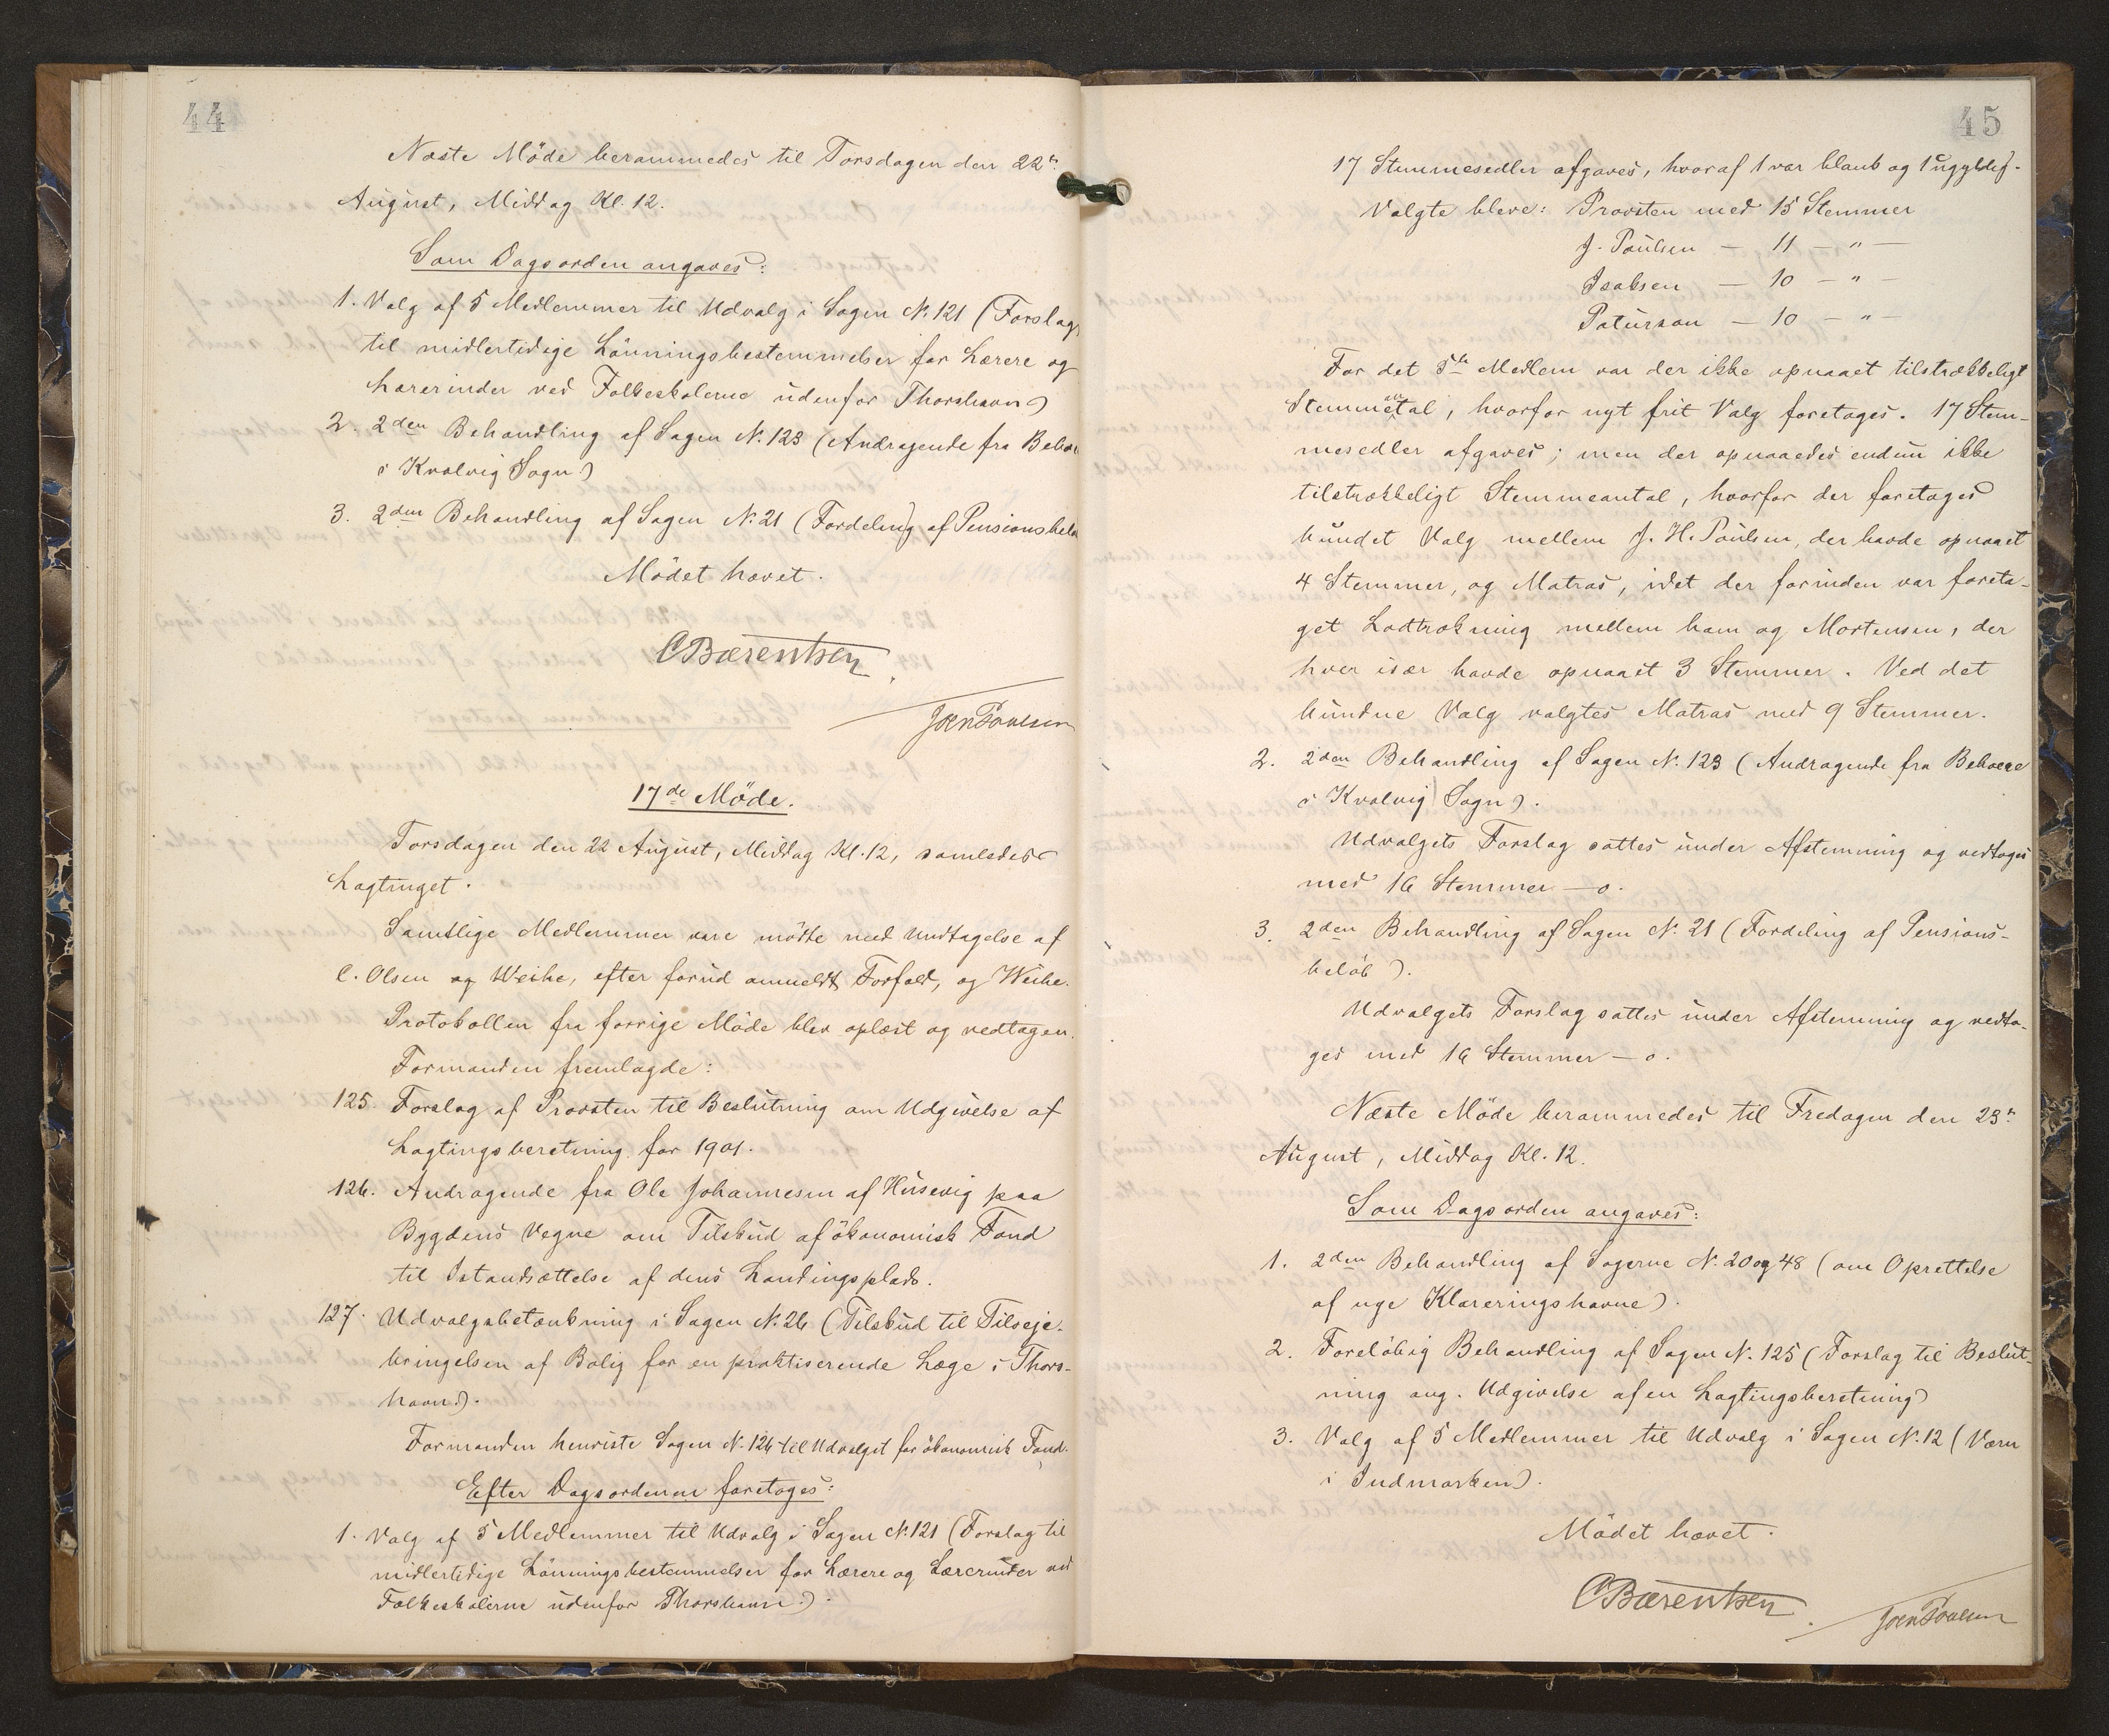 44
Næste Möde berammedes til Torsdagen den 22de
August, Middag Kl. 12.
Som Dagsorden angaves:
1. Valg af 5 Medlemmer til Udvalg i Sagen N. 121 (Forslag
til midlertidige Lönningsbestemmelser for Lærere og
Lærerinder ved Folkeskolerne udenfor Thorshavn)
2. 2den Behandling af Sagen N. 123 (Andragende fra Beboe
i Kvalvig Sogn)
3. 2den Behandling af Sagen N. 21 (Fordeling af Pensionsbelö
Mödet hævet.
CBærentsen
Joen Poulsen
17de Möde.
Torsdagen den 22 August, Middag Kl. 12, samledes
Lagtinget.
Samtlige Medlemmer vare mödte med Undtagelse af
C. Olsen og Weihe, efter forud anmeldt Forfald, og Weihe.
Protokollen fra forrige Möde blev oplæst og vedtagen.
Formanden fremlagde:
125. Forslag af Provsten til Beslutning om Udgivelse af
Lagtingsberetning for 1901.
126. Andragende fra Ole Johannesen af Húsevig paa
Bygdens Vegne om Tilskud af ökonomisk Fond
til Istandsættelse af dens Landingsplads.
127. Udvalgsbetænkning i Sagen N. 26 (Tilskud til Tilveje-
bringelsen af Bolig for en praktiserende Læge i Thors-
havn).
Formanden henviste Sagen N. 126 til Udvalget for ökonomisk Fond.
Efter Dagsordenen foretoges:
1. Valg af 5 Medlemmer til Udvalg i Sagen N. 121 (Forslag til
midlertidige Lönningsbestemmelser for Lærere og Lærerinder ved
Folkeskolerne udenfor Thorshavn).
45
17 Stemmesedler afgaves, hvoraf 1 var blank og 1 ugyldig.
Valgte bleve: Provsten med 15 Stemmer
J. Poulsen — 11 — " —
Isaksen — 10 — " —
Patursson — 10 — " —
For det 5te Medlem var der ikke opnaaet tilstrækkeligt
Stemmeantal, hvorfor nyt frit Valg foretoges. 17 Stem-
mesedler afgaves; men der opnaaedes endnu ikke
tilstrækkeligt Stemmeantal, hvorfor der foretoges
bundet Valg mellem J. H. Poulsen, der havde opnaaet
4 Stemmer, og Matras, idet der forinden var foreta-
get Lodtrækning mellem ham og Mortensen, der
hver især havde opnaaet 3 Stemmer. Ved det
bundne Valg valgtes Matras med 9 Stemmer.
2. 2den Behandling af Sagen N. 123 (Andragende fra Beboere
i Kvalvig Sogn).
Udvalgets Forslag sattes under Afstemning og vedtoges
med 16 Stemmer — o.
3. 2den Behandling af Sagen N. 21 (Fordeling af Pensions-
beløb).
Udvalgets Forslag sattes under Afstemning og vedto-
ges med 16 Stemmer — o.
Næste Möde berammedes til Fredagen den 23de
August, Middag Kl. 12.
Som Dagsorden angaves:
1. 2den Behandling af Sagerne N. 20 og 48 (om Oprettelse
af nye Klareringshavne).
2. Foreløbig Behandling af Sagen N. 125 (Forslag til Beslut-
ning ang. Udgivelse af en Lagtingsberetning)
3. Valg af 5 Medlemmer til Udvalg i Sagen N. 12 (Værn
i Indmarken).
Mödet hævet.
CBærentsen
Joen Poulsen